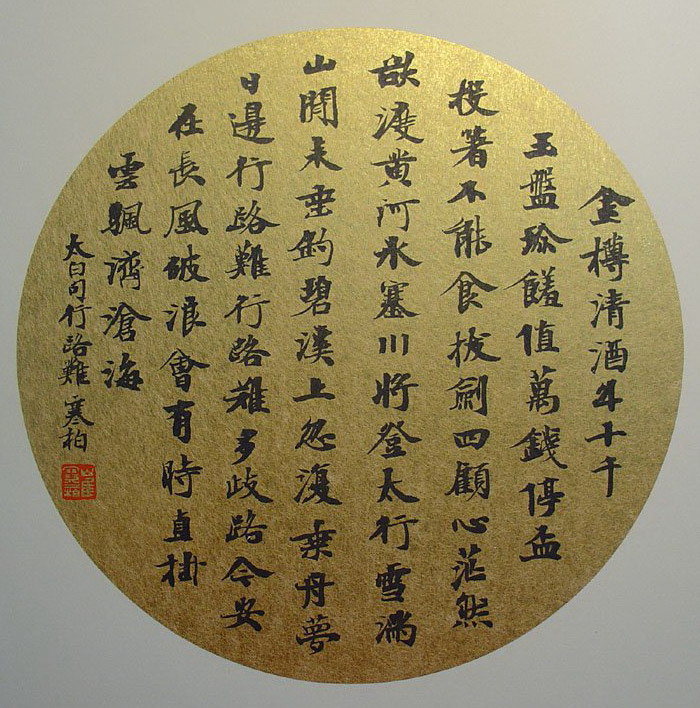 金樽清酒斗十千
玉盤珍饈值萬錢停盃
投箸不能食拔劍四顧心茫然
欲渡黃河冰塞川將登太行雪滿
山閒来垂釣碧溪上忽復乘舟夢
日邊行路難行路難多歧路今安
在長風破浪會有時直掛
雲颿濟滄海
太白句行路難 寒柏